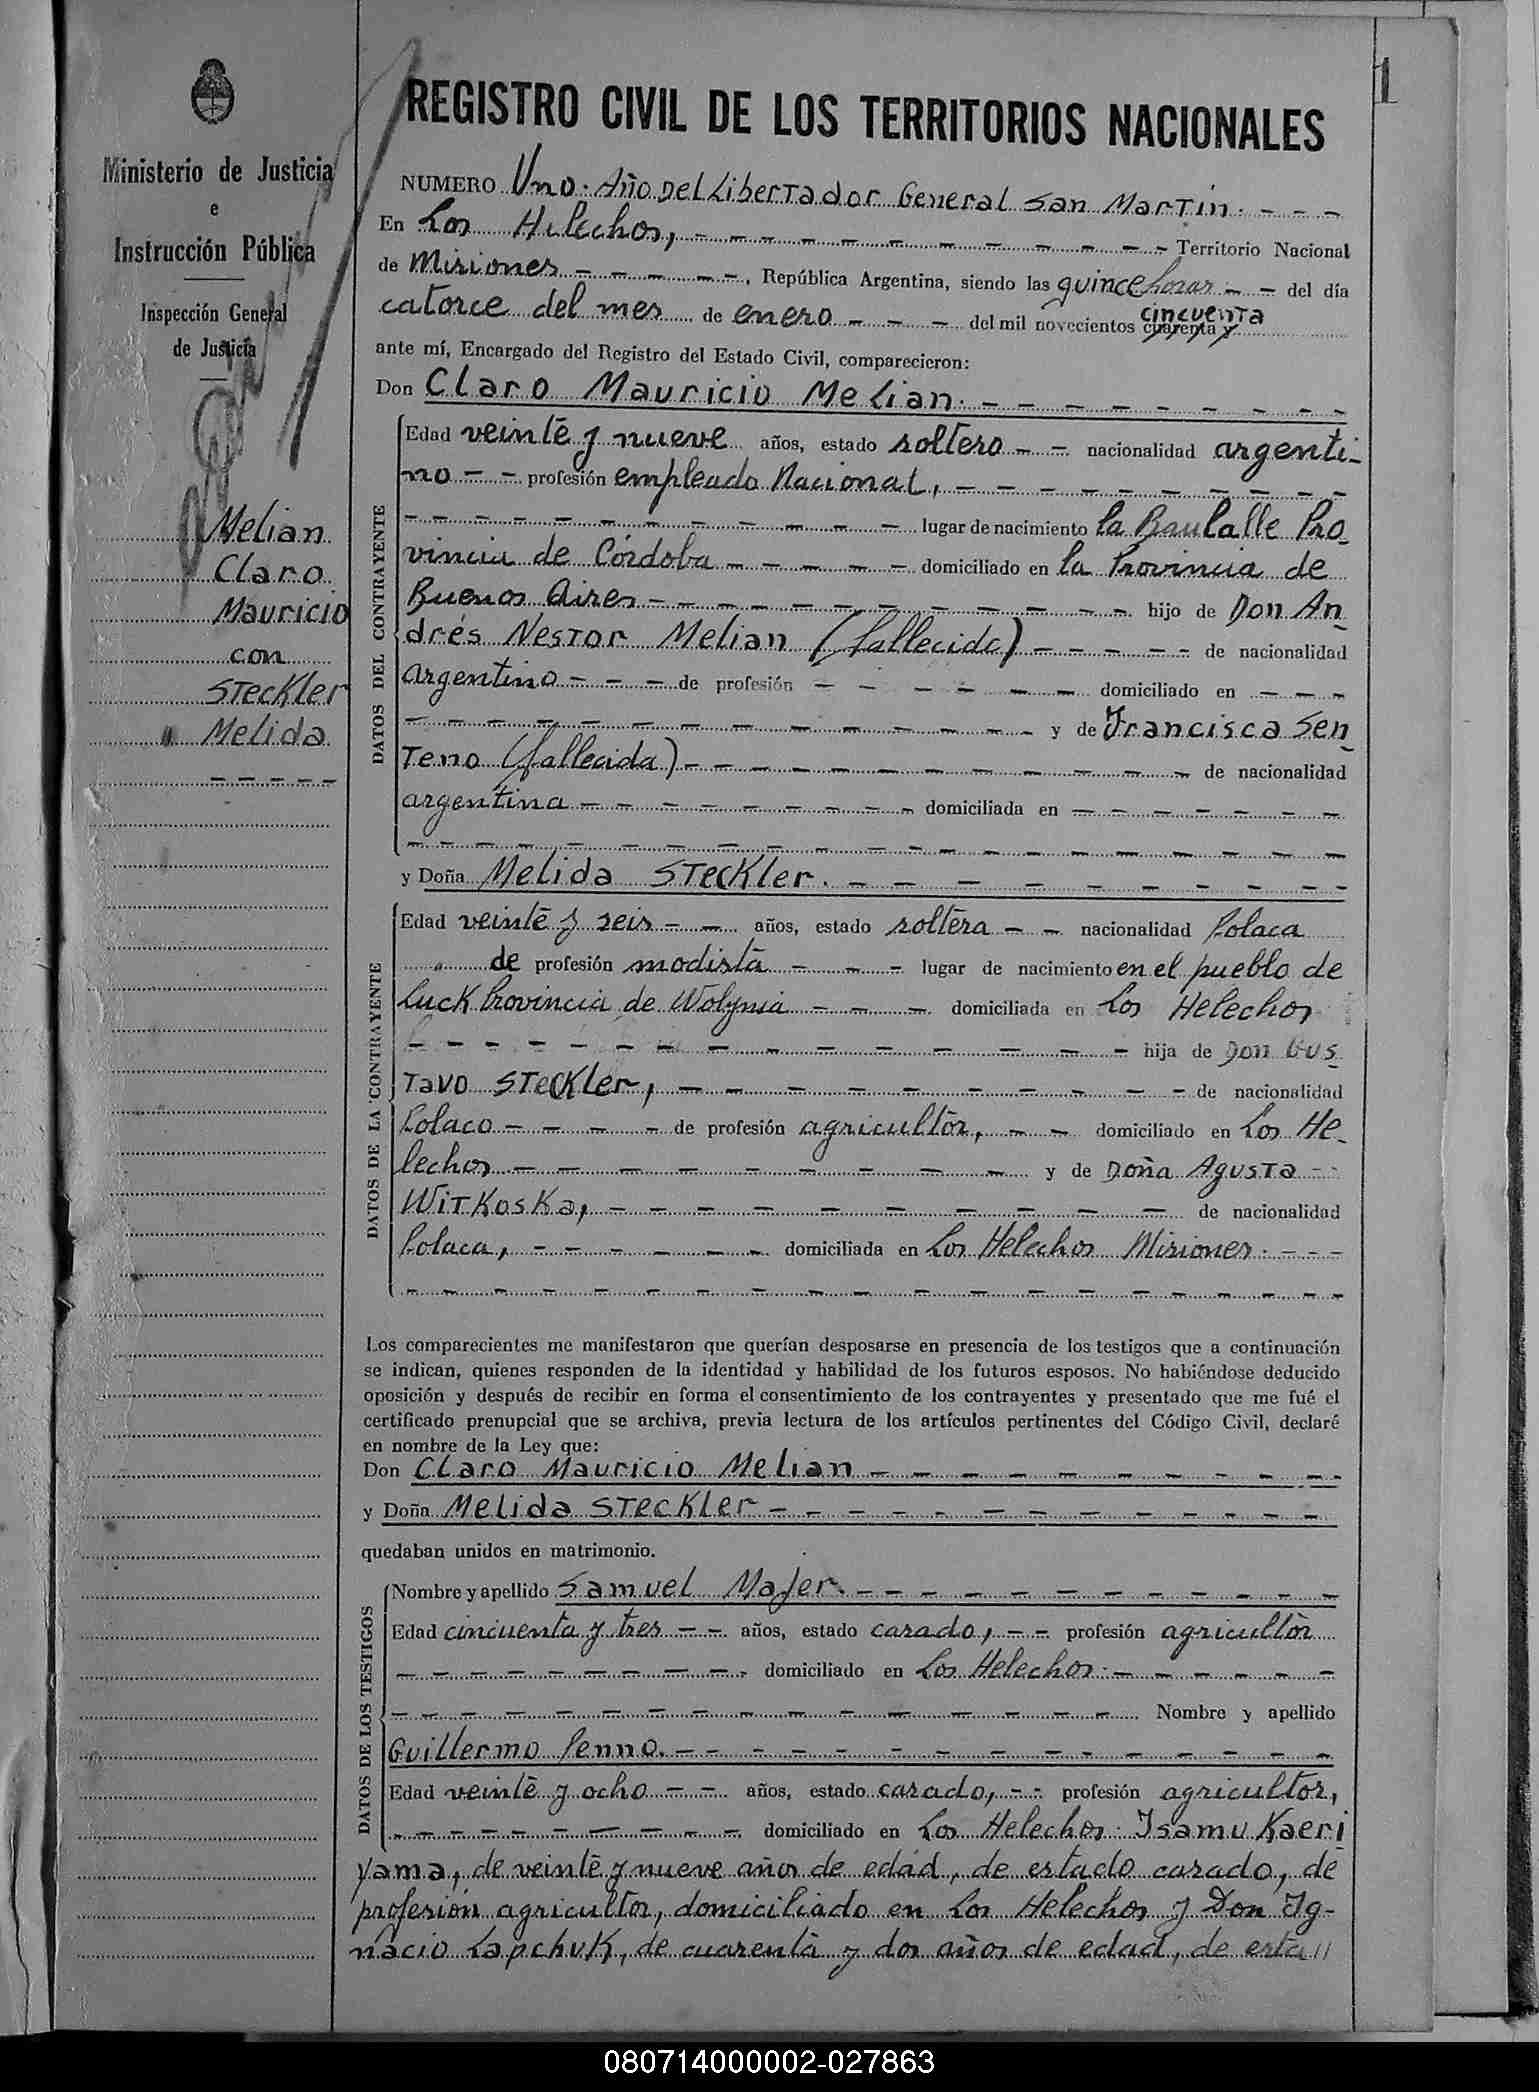 1
Ministerio de Justicia
e
Instrucción Pública
Inspección General
de Justicia
Melian
Claro
Mauricio
con
Steckler
" Melida
REGISTRO CIVIL DE LOS TERRITORIOS NACIONALES
NUMERO Uno. Año Del Libertador General San Martin. - - -
En Los Helechos, - - - Territorio Nacional
de Misiones - - -, República Argentina, siendo las quince horas - - del día
catorce del mes de enero - - - del mil novecientos cuarenta y cincuenta
ante mí, Encargado del Registro del Estado Civil, comparecieron:
Don Claro Mauricio Melian. - - -
DATOS DEL CONTRAYENTE
Edad veinte y nueve años, estado soltero - - nacionalidad argenti-
no - - profesión empleado Nacional, - - -
- - - lugar de nacimiento la Pro-
vincia de Córdoba - - - domiciliado en la Provincia de
Buenos Aires - - - hijo de Don An-
drés Nestor Melian (fallecido) - - - de nacionalidad
argentino - - - de profesión - - - domiciliado en - - -
- - - y de Francisca Sen-
teno (fallecida) - - - de nacionalidad
argentina - - - domiciliada en - - -
y Doña Melida Steckler. - - -
DATOS DE LA CONTRAYENTE
Edad veinte y seis - - años, estado soltera - - nacionalidad Polaca
de profesión modista - - - lugar de nacimiento en el pueblo de
Luck Provincia de Wolynia - - - domiciliada en Los Helechos
- - - hija de Don Gus-
tavo Steckler, - - - de nacionalidad
Polaco - - - de profesión agricultor, - - domiciliado en Los He-
lechos - - - y de Doña Agusta - -
Witkoska, - - - de nacionalidad
Polaca, - - - domiciliada en Los Helechos Misiones. - - -
Los comparecientes me manifestaron que querían desposarse en presencia de los testigos que a continuación
se indican, quienes responden de la identidad y habilidad de los futuros esposos. No habiéndose deducido
oposición y después de recibir en forma el consentimiento de los contrayentes y presentado que me fué el
certificado prenupcial que se archiva, previa lectura de los artículos pertinentes del Código Civil, declaré
en nombre de la Ley que:
Don Claro Mauricio Melian - - -
y Doña Melida Steckler - - -
quedaban unidos en matrimonio.
DATOS DE LOS TESTIGOS
Nombre y apellido Samuel Majer. - - -
Edad cincuenta y tres - - años, estado casado, - - profesión agricultor
- - - domiciliado en Los Helechos. - - -
- - - Nombre y apellido
Guillermo Penno. - - -
Edad veinte y ocho - - años, estado casado, - - profesión agricultor,
- - - domiciliado en Los Helechos. Isamu Kaeri
yama, de veinte y nueve años de edad, de estado casado, de
profesión agricultor, domiciliado en Los Helechos y Don Ig-
nacio Lapchuk, de cuarenta y dos años de edad, de esta//
080714000002-027863